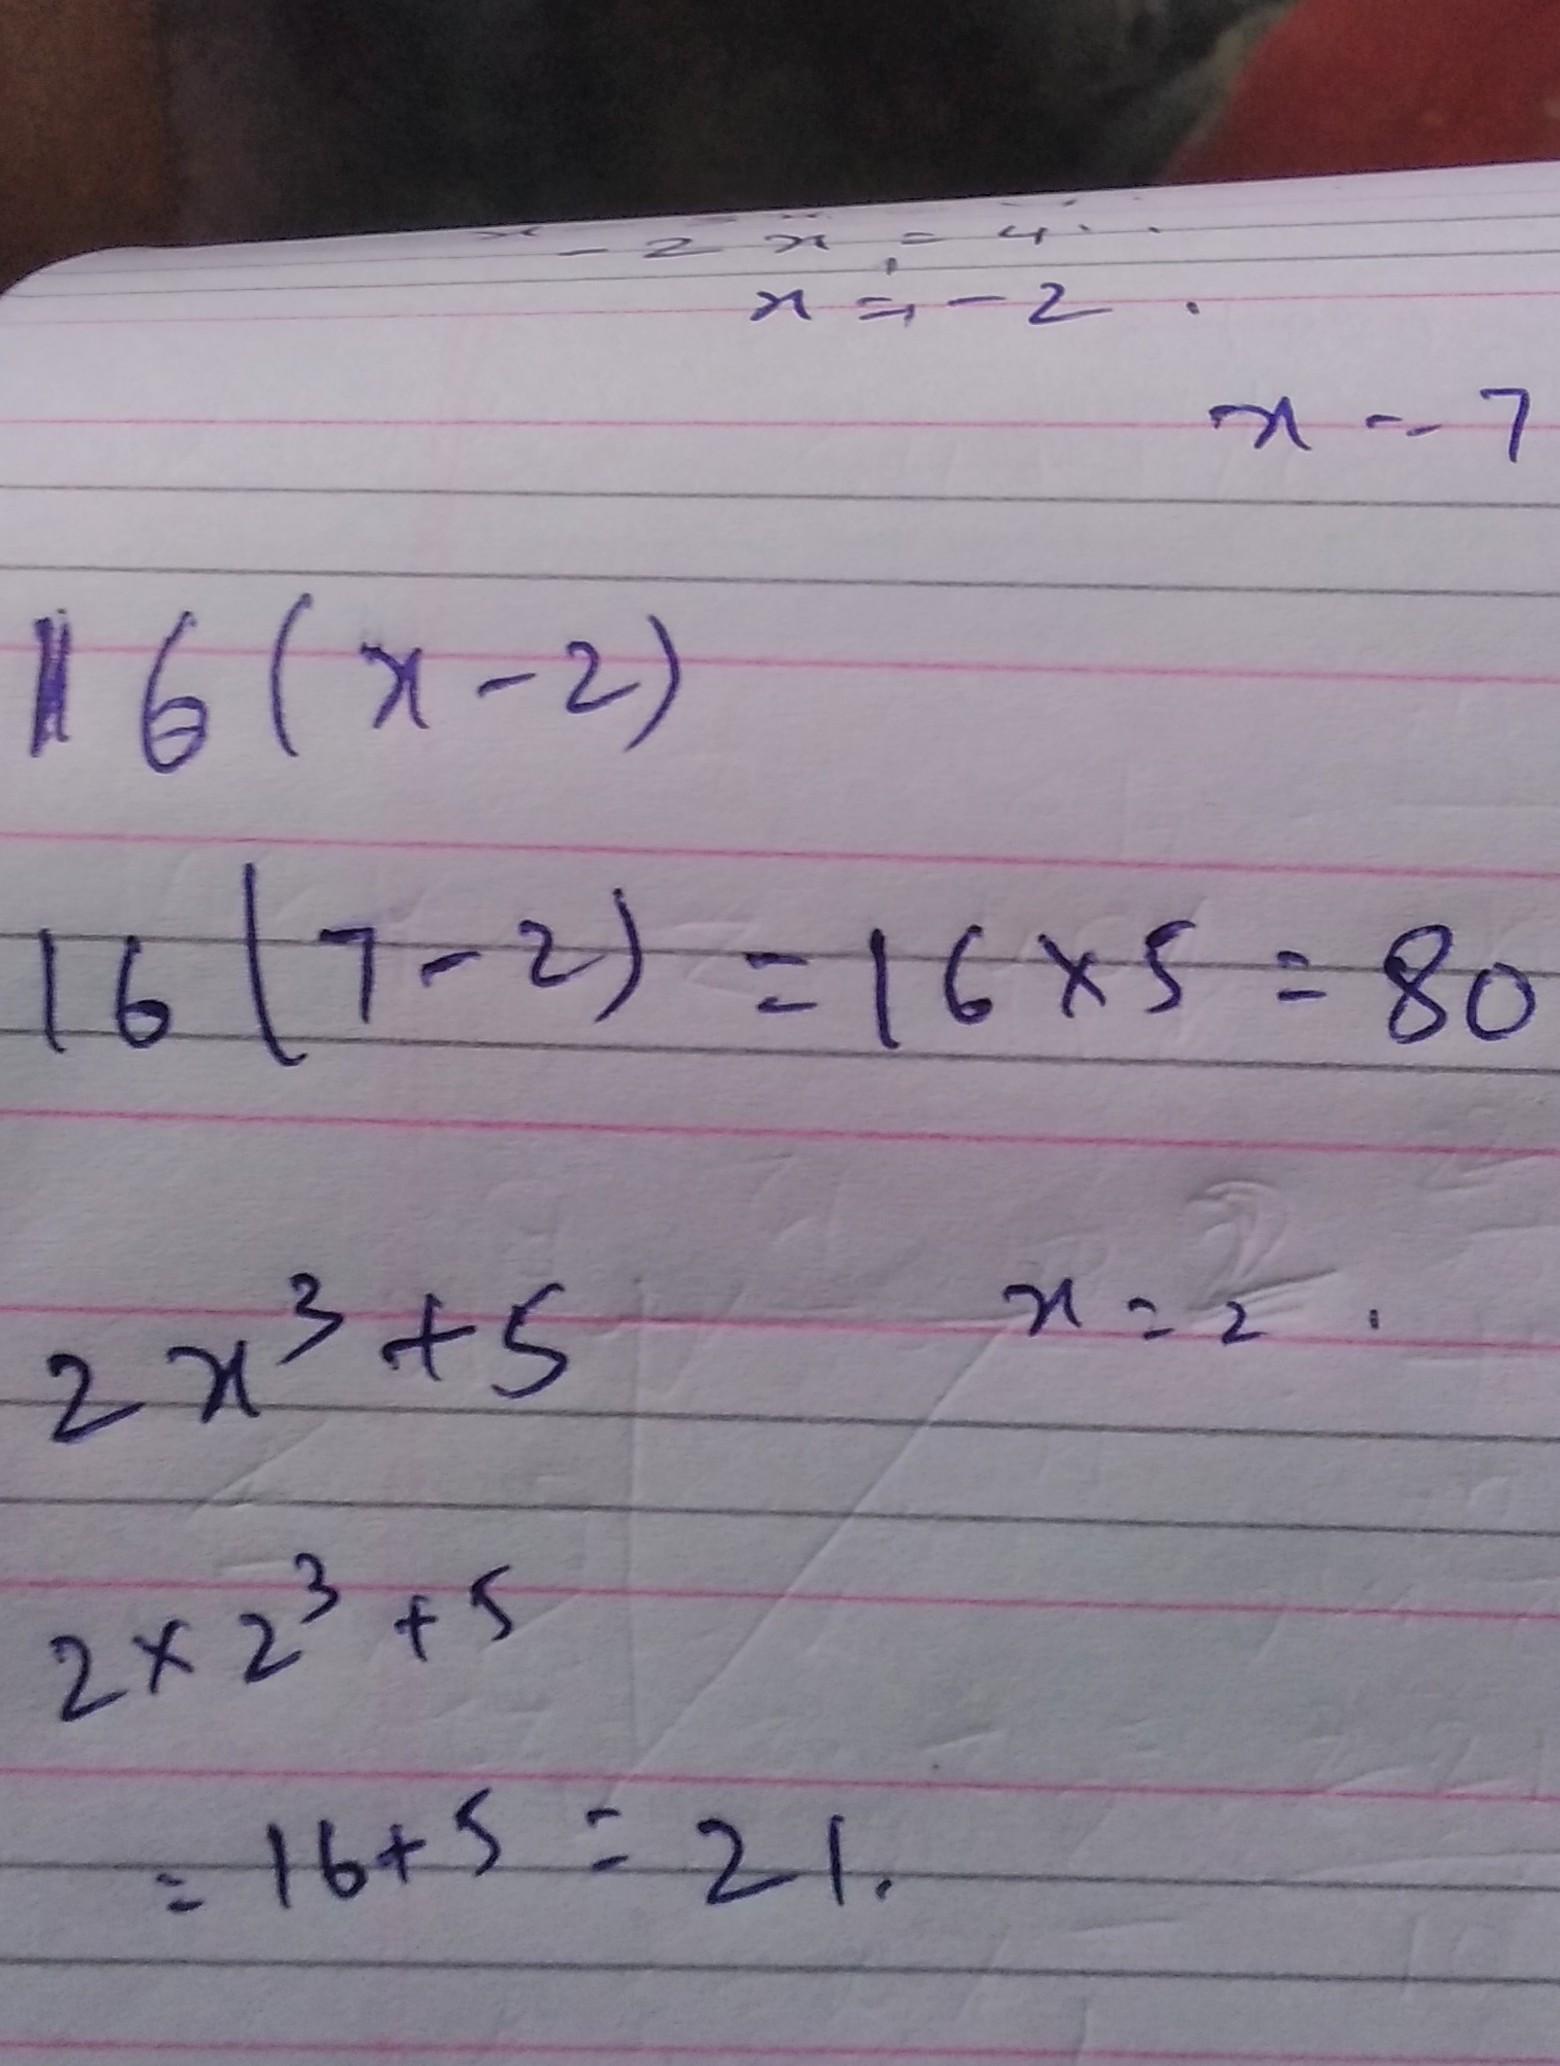 - 2 x = 4.
x = - 2 .
x = 7
16 ( x - 2 )
16 ( 7 - 2 ) = 16 × 5 = 80
2 x³ + 5 x = 2 .
2 × 2³ + 5
= 16 + 5 = 21.